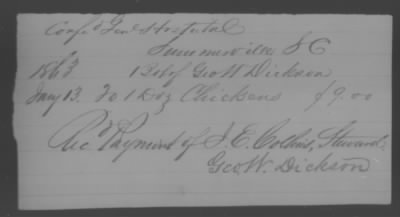 Confd Genl Hospital
Summerville S C
1863 Bot of Geo W Dickson
Jany 13. To 1 Doz Chickens $9.00
Rec'd Payment of J. E. Collins, Steward.
Geo W. Dickson